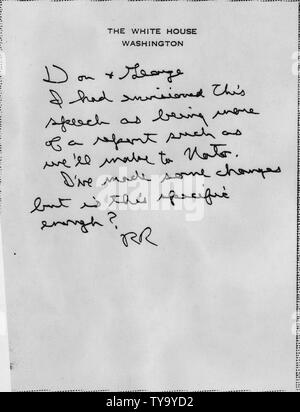 THE WHITE HOUSE
WASHINGTON
Don & George
I had envisioned this
speech as being more
of a report such as
we'll make to Nato.
I've made some changes
but is this specific
enough?
RR
alamy
TY9YD2